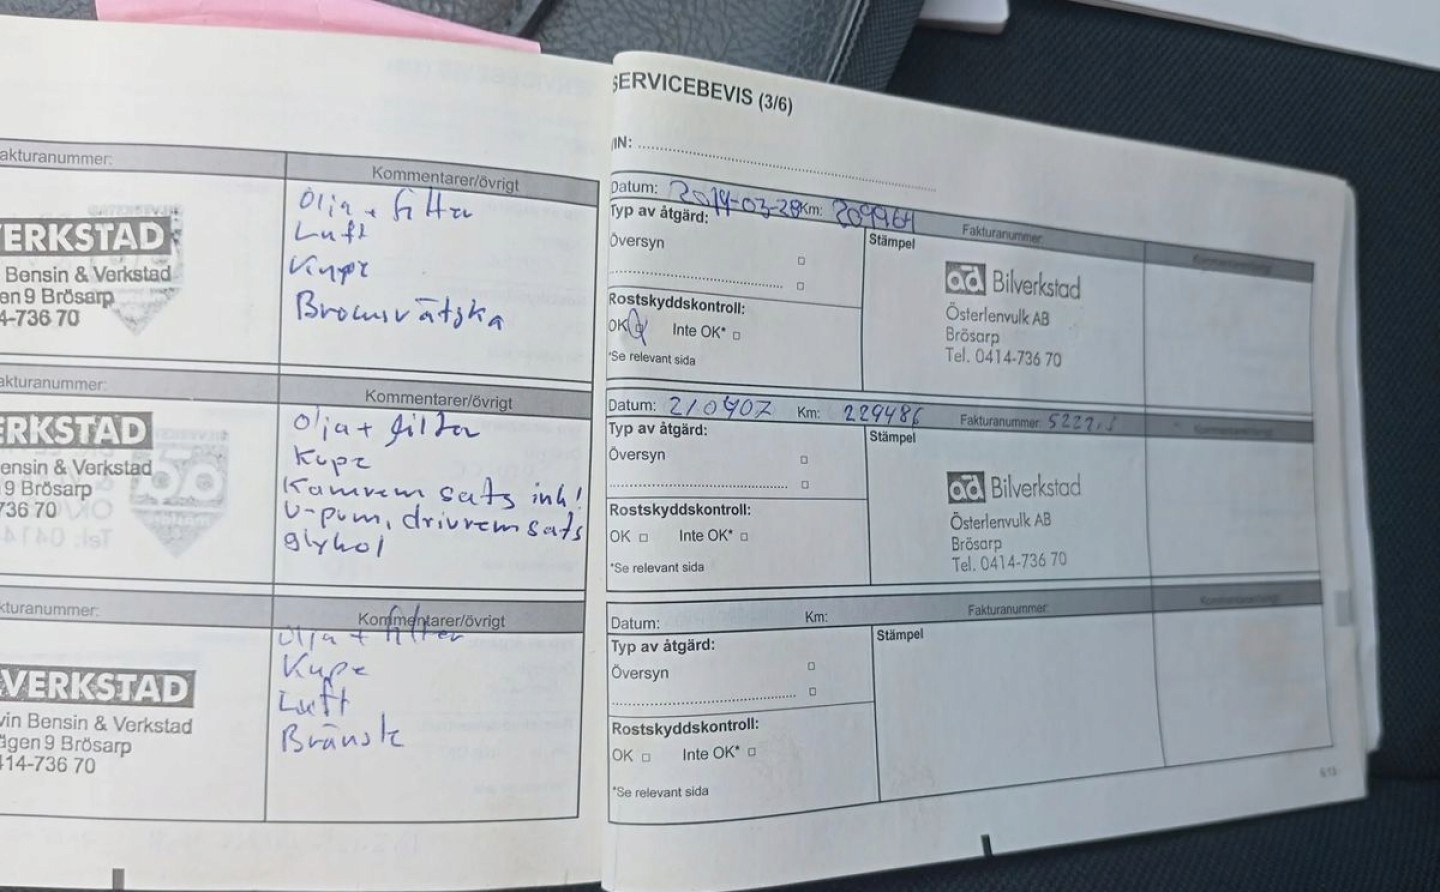 akturanummer:
Kommentarer/övrigt
Olja + filter
Luft
Kupe
Bromsvätska
VERKSTAD
Bensin & Verkstad
en 9 Brösarp
4-736 70
akturanummer:
Kommentarer/övrigt
Olja + filter
Kupe
Kamrem sats ink!
V-pum, drivrem sats
glykol
ERKSTAD
ensin & Verkstad
9 Brösarp
736 70
kturanummer:
Kommentarer/övrigt
Olja + filter
Kupe
Luft
Bränsle
VERKSTAD
vin Bensin & Verkstad
ägen 9 Brösarp
414-736 70
SERVICEBEVIS (3/6)
IN:
Datum: 2019-03-28 Km: 209964
Fakturanummer:
Typ av åtgärd:
Stämpel
Översyn
Rostskyddskontroll:
OK Inte OK*
*Se relevant sida
ad Bilverkstad
Österlenvulk AB
Brösarp
Tel. 0414-736 70
Datum: 210407 Km: 229486 Fakturanummer:
Typ av åtgärd:
Stämpel
Översyn
Rostskyddskontroll:
OK Inte OK*
*Se relevant sida
ad Bilverkstad
Österlenvulk AB
Brösarp
Tel. 0414-736 70
Datum: Km: Fakturanummer:
Typ av åtgärd:
Stämpel
Översyn
Rostskyddskontroll:
OK Inte OK*
*Se relevant sida